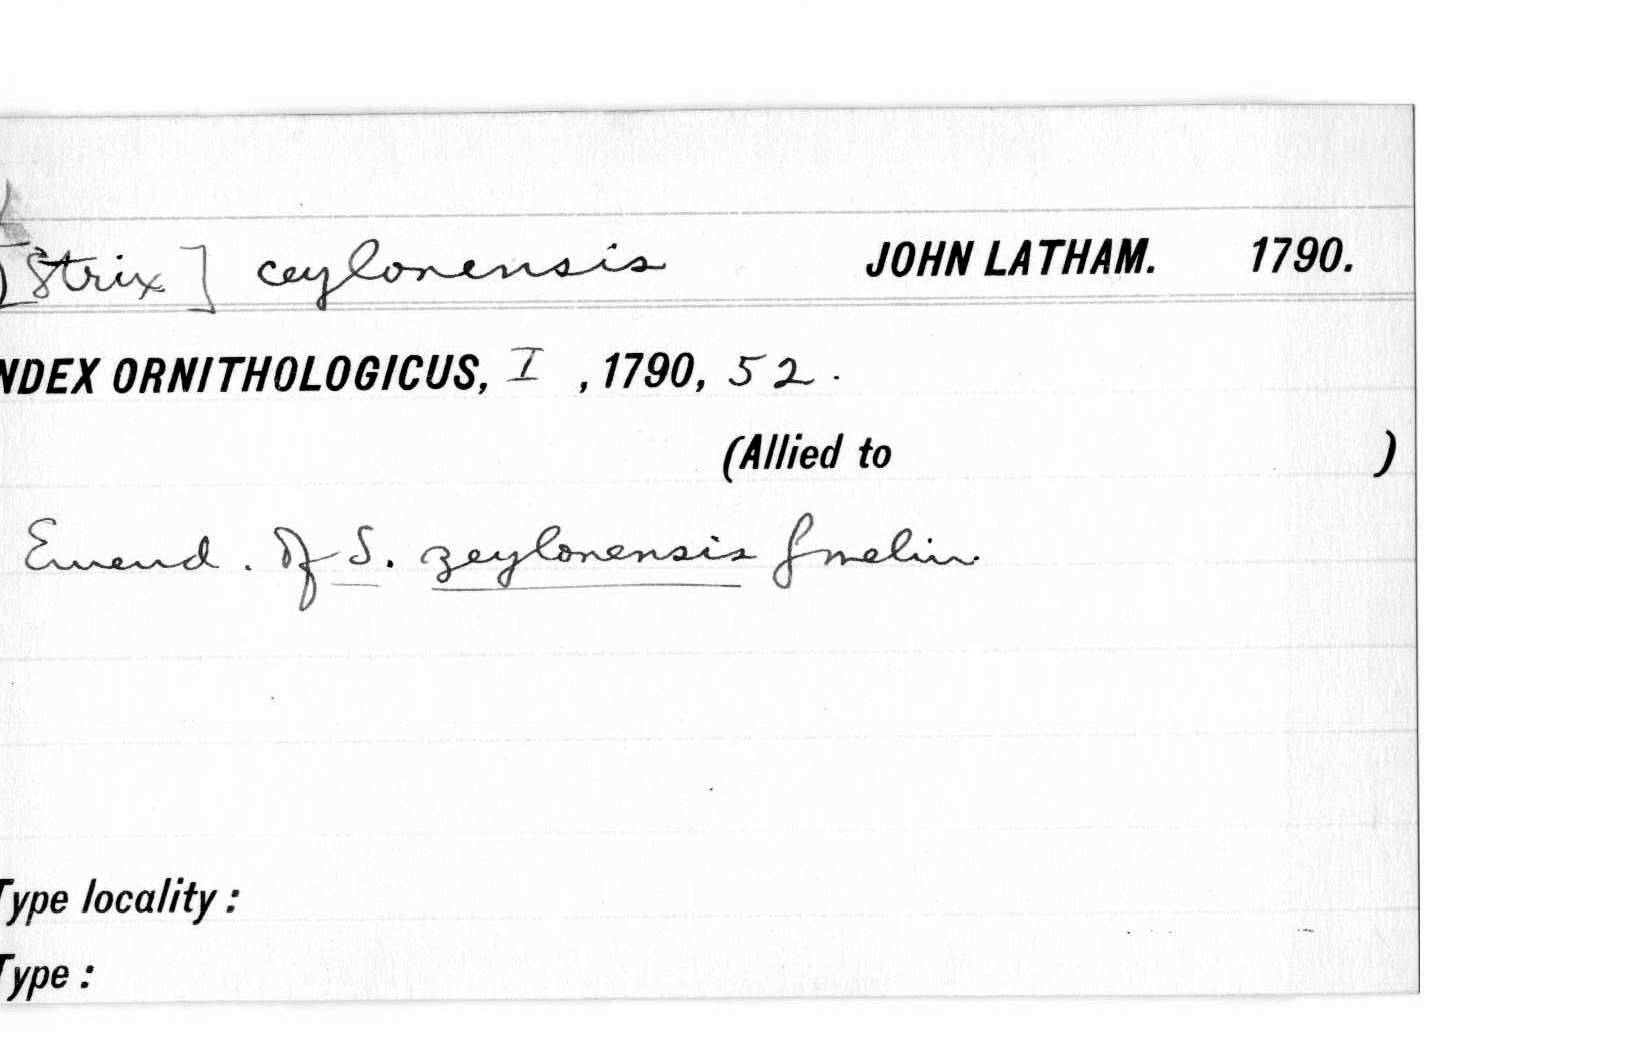 [Strix] ceylonensis JOHN LATHAM. 1790.
NDEX ORNITHOLOGICUS, I , 1790, 52.
(Allied to )
Emend. Of S. zeylonensis Gmelin.
Type locality :
Type :